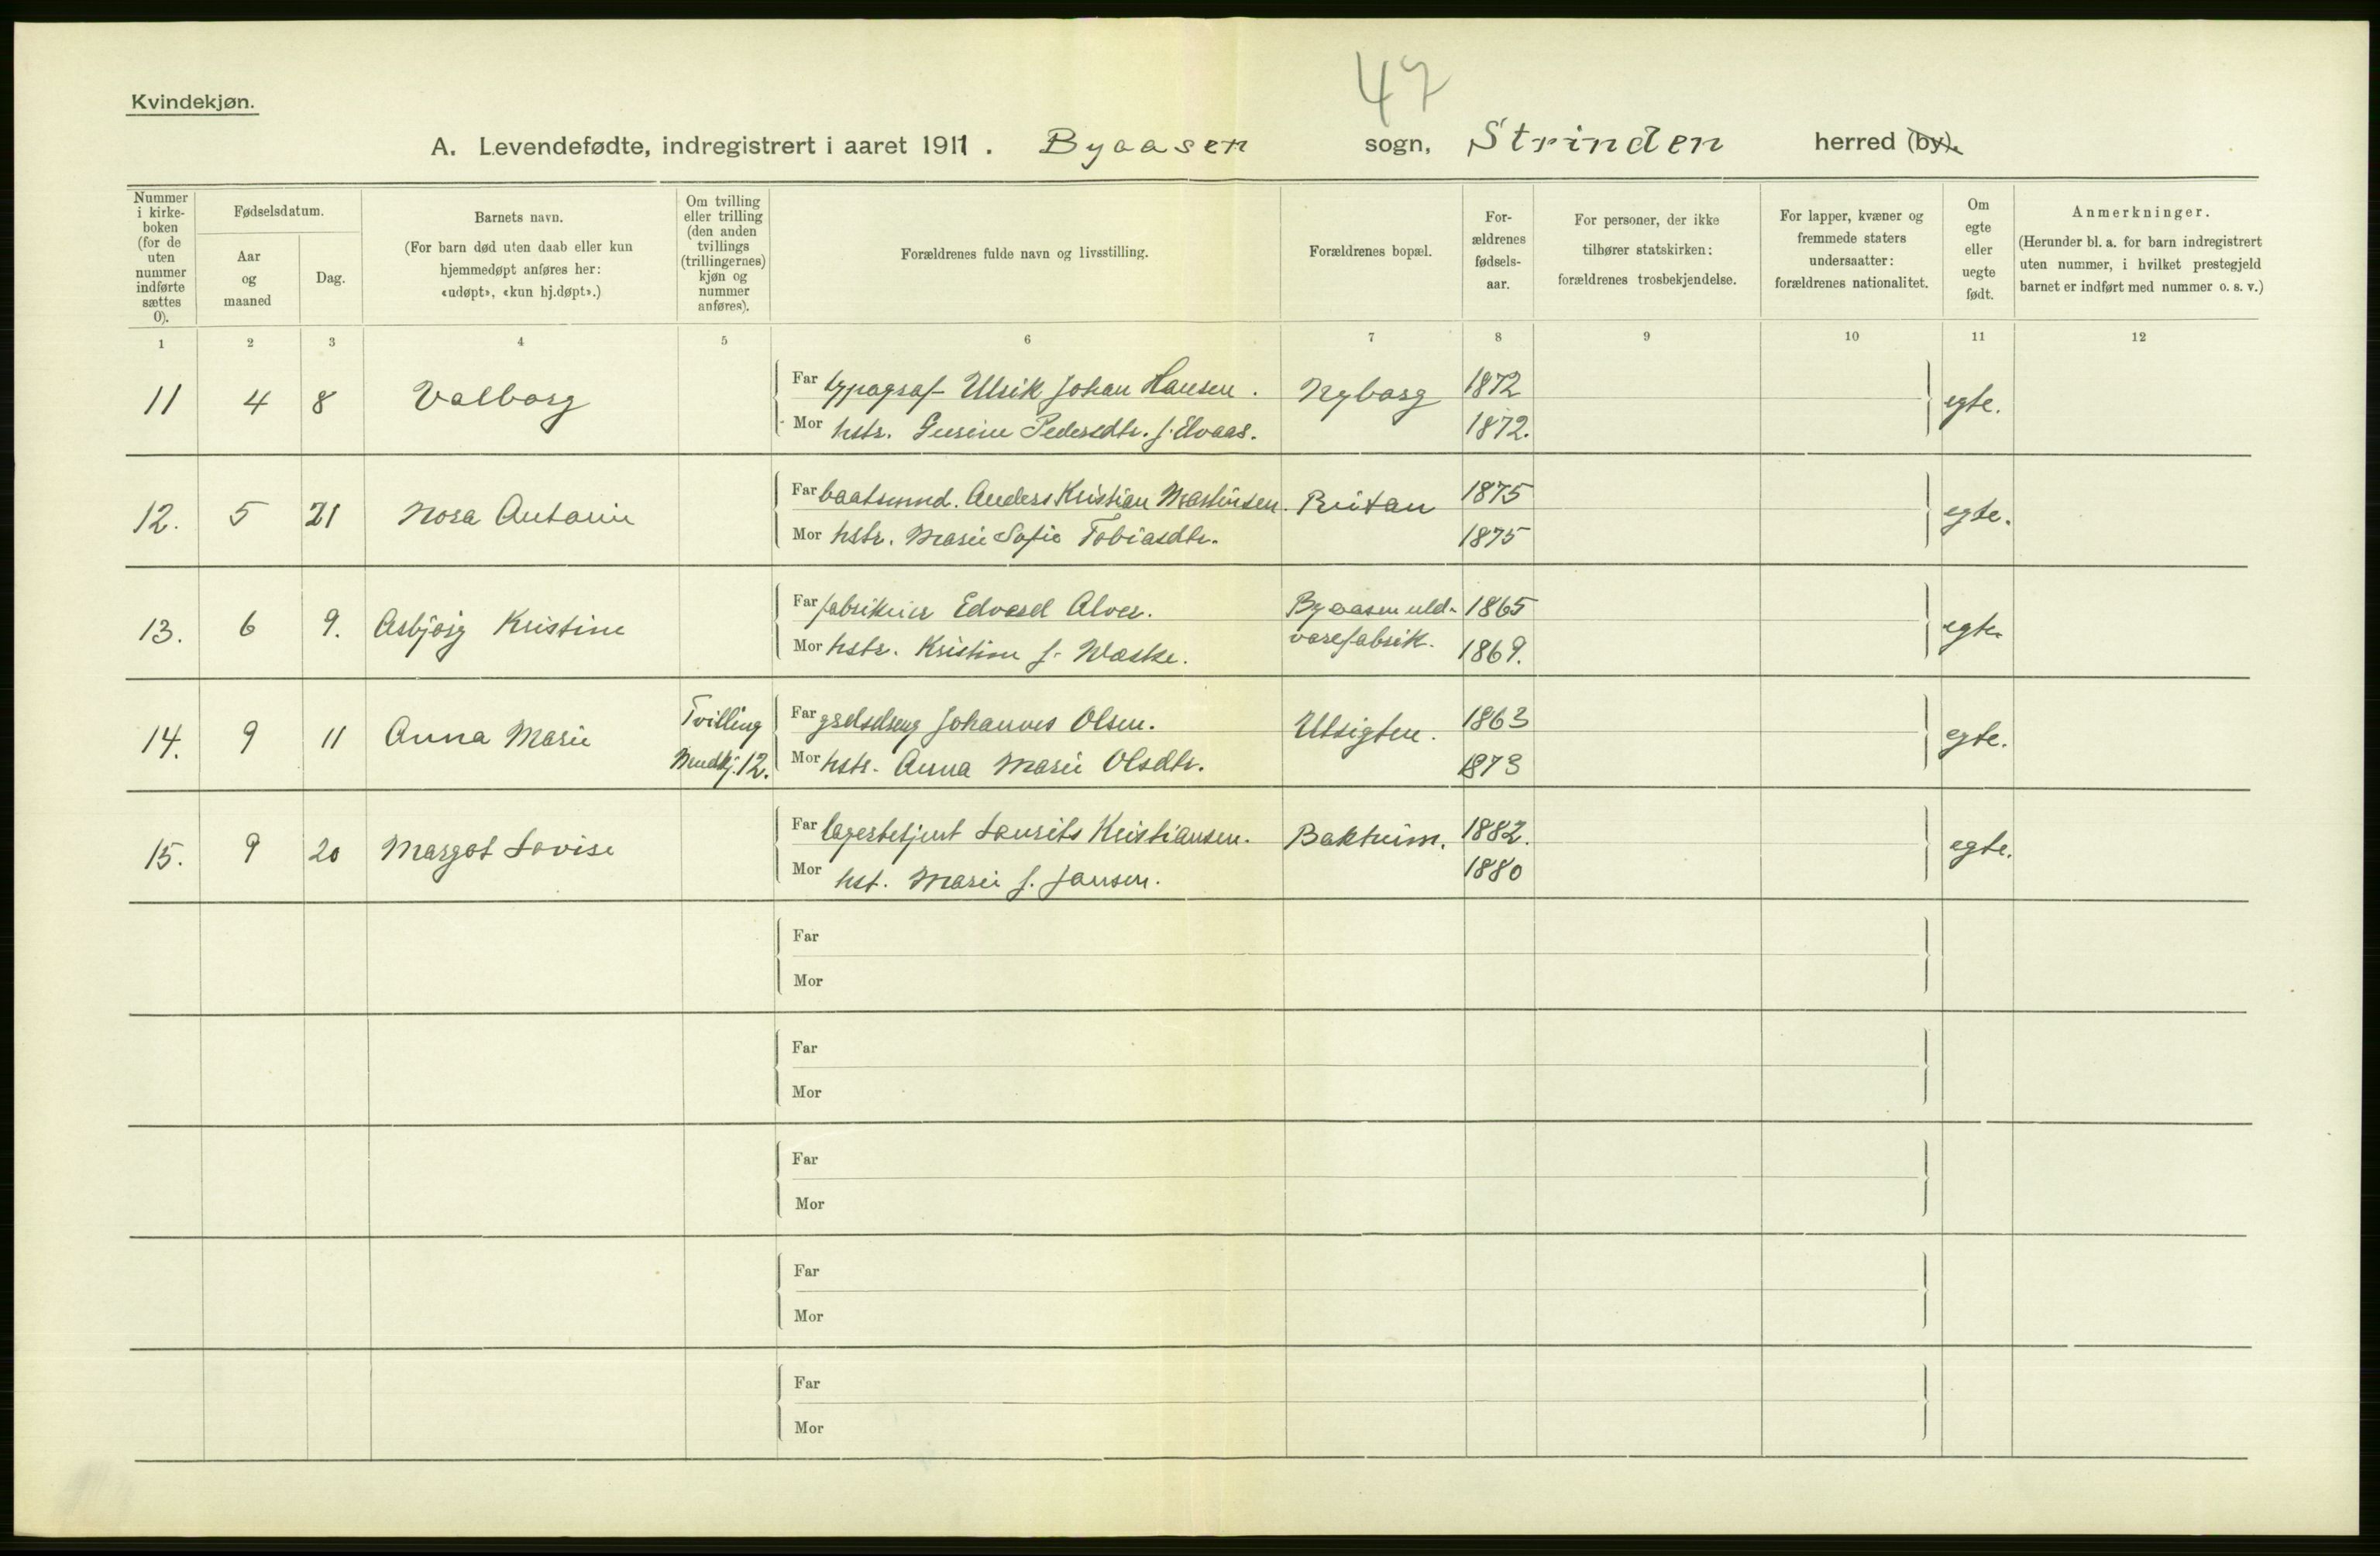 47
Kvindekjøn.
A. Levendefødte, indregistrert i aaret 1911. Byaasen sogn, Strinden herred (by).
Nummer i kirke-boken (for de uten nummer indførte sættes 0).
Fødselsdatum.
Aar og maaned
Dag.
Barnets navn.
(For barn død uten daab eller kun hjemmedøpt anføres her: «udøpt», «kun hj.døpt».)
Om tvilling eller trilling (den anden tvillings (trillingernes) kjøn og nummer anføres).
Forældrenes fulde navn og livsstilling.
Forældrenes bopæl.
For-ældrenes fødsels-aar.
For personer, der ikke tilhører statskirken: forældrenes trosbekjendelse.
For lapper, kvæner og fremmede staters undersaatter: forældrenes nationalitet.
Om egte eller uegte født.
Anmerkninger.
(Herunder bl. a. for barn indregistrert uten nummer, i hvilket prestegjeld barnet er indført med nummer o. s. v.)
1 2 3 4 5 6 7 8 9 10 11 12
11 4 8 Valborg Far typograf Ulrik Johan Hansen. Nyborg 1872 egte.
Mor hstr. Gurine Pedersdtr. f. Elvaas. 1872.
12. 5 21 Nora Antonie Far baatsmnd. Anders Kristian Martinsen. Reitan 1875 egte.
Mor hstr. Marie Sofie Tobiasdtr. 1875
13. 6 9. Asbjørg Kristine Far fabrikeier Edvard Alver. Byaasen uld- 1865 egte
varefabrik.
Mor hstr. Kristine f. Wæske. 1869.
14. 9 11 Anna Marie Tvilling Far Johannes Olsen. Utsigten. 1863 egte.
Mandkj. 12. Mor hstr. Anna Marie Olsdtr. 1873
15. 9 20 Margot Lovise Far lagerbetjent Laurits Kristiansen. Bakheim. 1882. egte.
Mor hst. Marie f. Jansen. 1880
Far
Mor
Far
Mor
Far
Mor
Far
Mor
Far
Mor